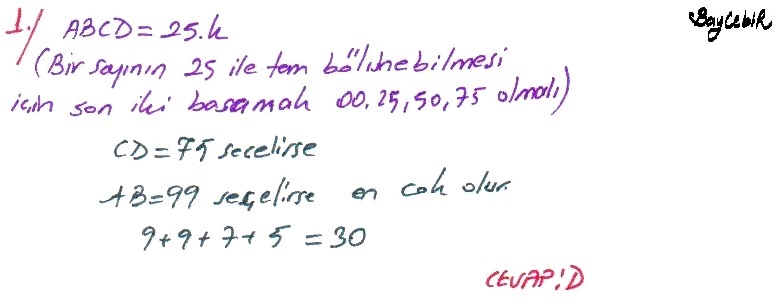 BayCebiR
1./ ABCD = 25.k
(Bir sayının 25 ile tam bölünebilmesi
için son iki basamak 00, 25, 50, 75 olmalı)
CD = 75 secelirse
AB = 99 seçelirse en cok olur.
9+9+7+5 = 30
CEVAP: D